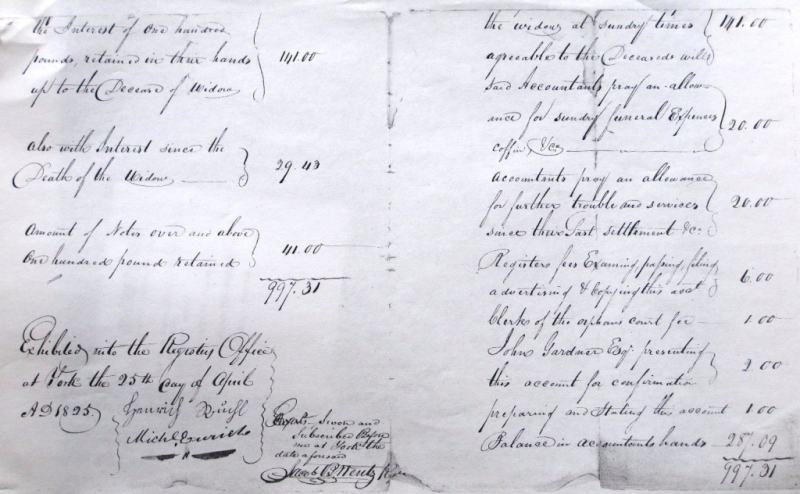 the Interest of One hundred
pounds, retained in their hands
up to the Decease of Widow
141.00
also with Interest since the
Death of the Widow
29.43
Amount of Notes over and above
One hundred pound retained
41.00
997.31
Exhibited into the Registry Office
at York the 25th day of April
AD 1825
Accpts. Sworn and
Subscribed Before
me at York the
date aforesaid
the widow at sundry times
agreeable to the Deceaseds will
141.00
said Accountants pray an allow-
ance for sundry funeral Expences
coffin &c
20.00
accountants pray an allowance
for further trouble and services
since their Last settlement &c
20.00
Registers fees Examing, passing, filing
advertising & Copying this acct
6.00
Clerks of the orphans court fee 1.00
John Gardner Esqr presenting
this account for confirmation
2.00
preparing and Stating this account 1.00
Balance in accountants hands 287.09
997.31